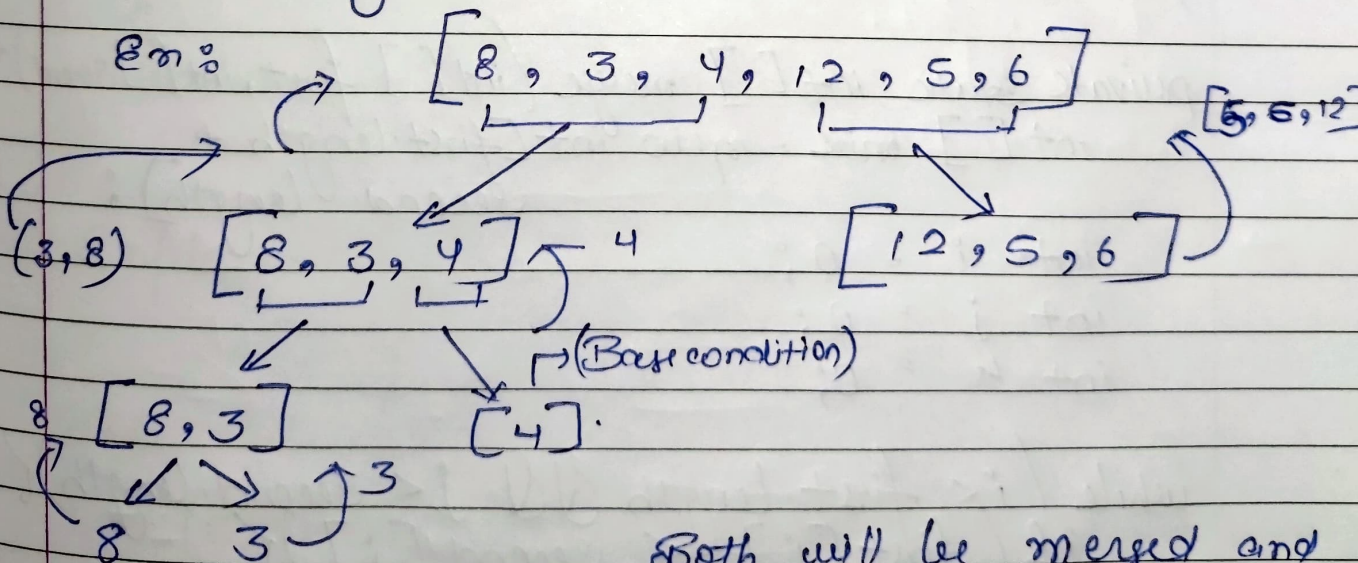 Ex: [8, 3, 4, 12, 5, 6]
[5, 6, 12]
(3,8) [8, 3, 4] 4 [12, 5, 6]
(Base condition)
8 [8, 3] [4].
3
8 3
Both will be merged and